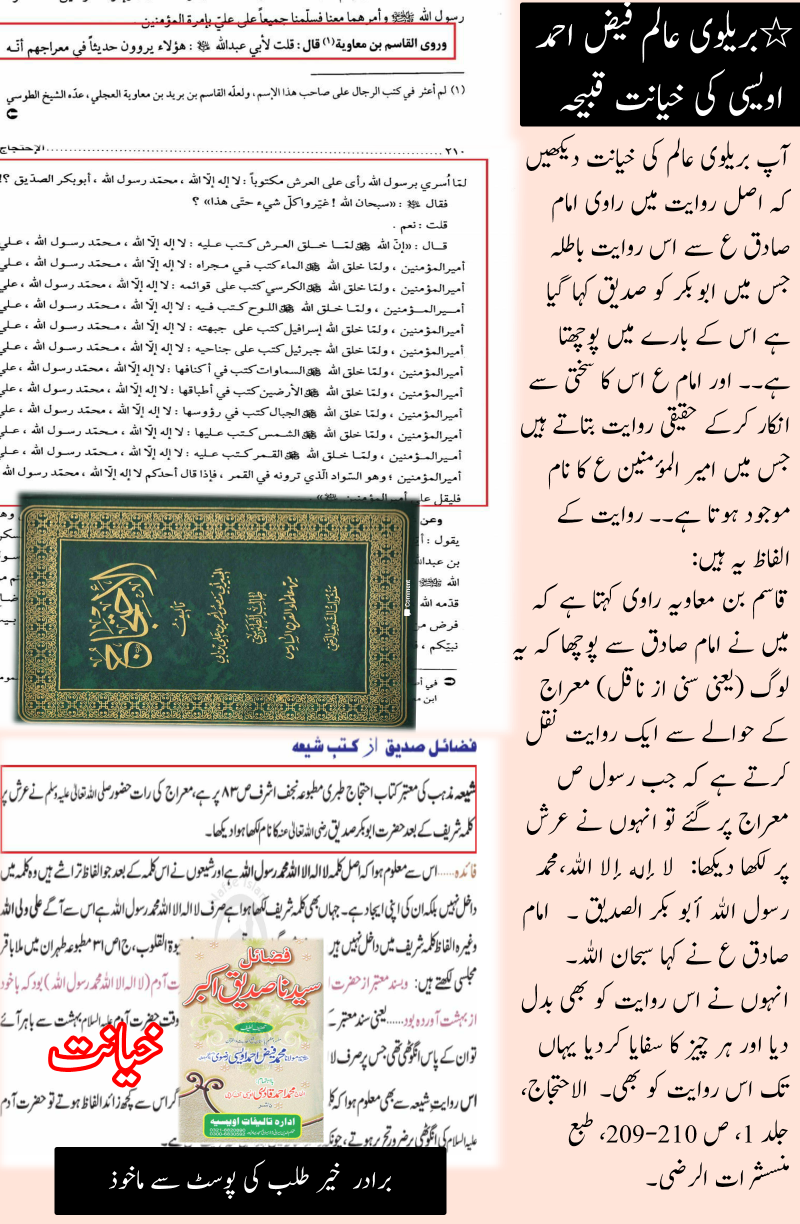 ☆بریلوی عالم فیض احمد
اویسی کی خیانت قبیحہ
آپ بریلوی عالم کی خیانت دیکھیں
کہ اصل روایت میں راوی امام
صادق ع سے اس روایت باطلہ
جس میں ابوبکر کو صدیق کہا گیا
ہے اس کے بارے میں پوچھتا
ہے۔۔ اور امام ع اس کا سختی سے
انکار کرکے حقیقی روایت بتاتے ہیں
جس میں امیر المؤمنین ع کا نام
موجود ہوتا ہے۔۔ روایت کے
الفاظ یہ ہیں:
قاسم بن معاویہ راوی کہتا ہے کہ
میں نے امام صادق سے پوچھا کہ یہ
لوگ (یعنی سنی از ناقل) معراج
کے حوالے سے ایک روایت نقل
کرتے ہے کہ جب رسول ص
معراج پر گئے تو انہوں نے عرش
پر لکھا دیکھا: لا إله إلا الله،محمد
رسول الله أبو بكر الصديق ۔ امام
صادق ع نے کہا سبحان اللہ۔
انہوں نے اس روایت کو بھی بدل
دیا اور ہر چیز کا سفایا کردیا یہاں
تک اس روایت کو بھی۔ الاحتجاج،
جلد 1، ص 210-209، طبع
منسثرات الرضی۔
رسول الله ﷺ وأمرهما معنا فسلّمنا جميعاً على عليّ بإمرة المؤمنين.
وروى القاسم بن معاوية (١) قال: قلت لأبي عبدالله ﷺ: هؤلاء يروون حديثاً في معراجهم أنّه
(١) لم أعثر في كتب الرجال على صاحب هذا الإسم، ولعلّه القاسم بن بريد بن معاوية العجلي، عدّه الشيخ الطوسي
٢١٠ ........ الإحتجاج
لمّا أُسري برسول الله رأى على العرش مكتوباً: لا إله إلّا الله، محمّد رسول الله، أبوبكر الصدّيق ؟!
فقال ﷺ: «سبحان الله ! غيّروا كلّ شيء حتّى هذا» ؟
قلت: نعم.
قال: «إنّ الله ﷻ لمّا خلق العرش كتب عليه: لا إله إلّا الله، محمّد رسول الله، علي
أميرالمؤمنين، ولمّا خلق الله ﷻ الماء كتب في مجراه: لا إله إلّا الله، محمّد رسول الله، علي
أميرالمؤمنين، ولمّا خلق الله ﷻ الكرسي كتب على قوائمه: لا إله إلّا الله، محمّد رسول الله، علي
أميرالمؤمنين، ولمّا خلق الله ﷻ اللوح كتب فيه: لا إله إلّا الله، محمّد رسول الله، علي
أميرالمؤمنين، ولمّا خلق الله إسرافيل كتب على جبهته: لا إله إلّا الله، محمّد رسول الله، علي
أميرالمؤمنين، ولمّا خلق الله جبرئيل كتب على جناحيه: لا إله إلّا الله، محمّد رسول الله، علي
أميرالمؤمنين، ولمّا خلق الله ﷻ السماوات كتب في أكنافها: لا إله إلّا الله، محمّد رسول الله، علي
أميرالمؤمنين، ولمّا خلق الله ﷻ الأرضين كتب في أطباقها: لا إله إلّا الله، محمّد رسول الله، علي
أميرالمؤمنين، ولمّا خلق الله ﷻ الجبال كتب في رؤوسها: لا إله إلّا الله، محمّد رسول الله، علي
أميرالمؤمنين، ولمّا خلق الله ﷻ الشمس كتب عليها: لا إله إلّا الله، محمّد رسول الله، علي
أميرالمؤمنين، ولمّا خلق الله ﷻ القمر كتب عليه: لا إله إلّا الله، محمّد رسول الله، علي
أميرالمؤمنين؛ وهو السّواد الّذي ترونه في القمر، فإذا قال أحدكم لا إله إلّا الله، محمّد رسول الله
فليقل علي أميرالمؤمنين
وعن
يقول:
بن عبدالله
الله ﷺ
قدّمه الله
فرض من
نبيّكم،
الاحتجاج
تأليف
Comment
فضائل صدیق از کتب شیعه
شیعہ مذہب کی معتبر کتاب احتجاج طبری مطبوعہ نجف اشرف ص ۸۳ پر ہے، معراج کی رات حضور صلی اللہ تعالیٰ علیہ وسلم نے عرش پر
کلمہ شریف کے بعد حضرت ابوبکر صدیق رضی اللہ تعالیٰ عنہ کا نام لکھا ہوا دیکھا۔
فائدہ......اس سے معلوم ہوا کہ اصل کلمہ لا الہ الا اللہ محمد رسول اللہ ہے اور شیعوں نے اس کلمہ کے بعد جو الفاظ تراشے ہیں وہ کلمہ میں
داخل نہیں بلکہ ان کی اپنی ایجاد ہے۔ جہاں بھی کلمہ شریف لکھا ہوا ہے صرف لا الہ الا اللہ محمد رسول اللہ ہے اس سے آگے علی ولی اللہ
وغیرہ الفاظ کلمہ شریف میں داخل نہیں ہیں القلوب، ج۱ص ۳۱ مطبوعہ طہران میں ملا باقر
مجلسی لکھتے ہیں: وبسند معتبر از حضرت آدم (لا الہ الا اللہ محمد رسول اللہ) بود کہ باخود
از بہشت آوردہ بود......یعنی سند معتبر وقت حضرت آدم علیہ السلام بہشت سے باہر آئے
تو ان کے پاس انگوٹھی تھی جس پر صرف لا
اس روایت شیعہ سے بھی معلوم ہوا کہ اگر اس سے کچھ زائد الفاظ ہوتے تو حضرت آدم
علیہ السلام کی انگوٹھی پر ضرور تحریر ہوتے،
خیانت
فضائل
سیدنا صدیق اکبر
محمد فیض احمد اویسی رضوی
محمد احمد قادری
ادارہ تالیفات اویسیہ
برادر خیر طلب کی پوسٹ سے ماخوذ